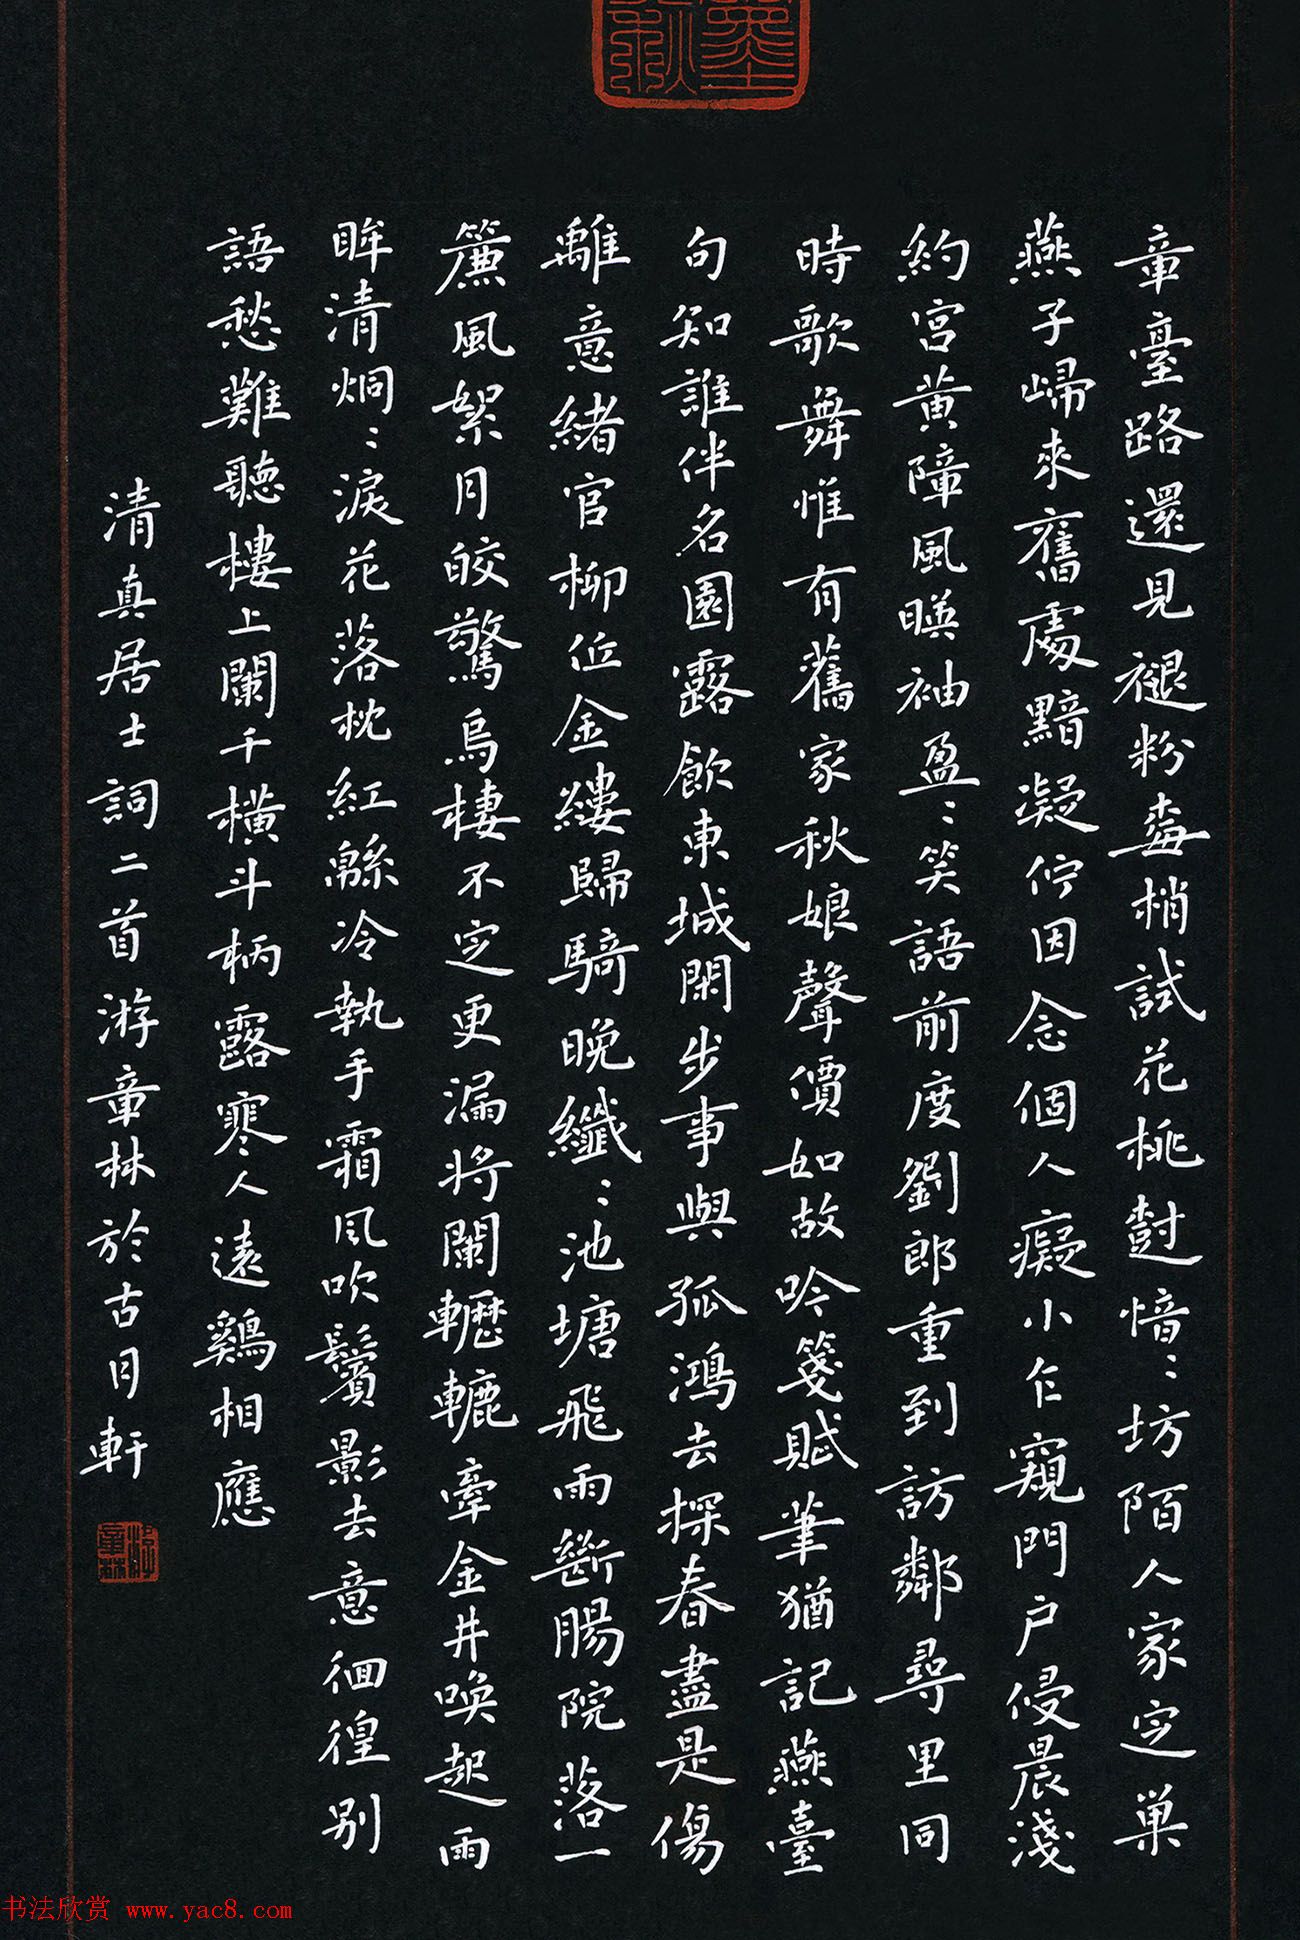 章臺路還見褪粉梅梢試花桃樹愔〻坊陌人家定巢
燕子歸來舊處黯凝佇因念個人癡小乍窺門戶侵晨淺
約宮黄障風暎袖盈〻笑語前度劉郎重到訪鄰尋里同
時歌舞惟有舊家秋娘聲價如故吟箋賦筆猶記燕臺
句知誰伴名園露飲東城閑步事與孤鴻去探春盡是傷
離意緒官柳低金縷歸騎晚纖〻池塘飛雨斷腸院落一
簾風絮月皎驚烏棲不定更漏將闌轣轆牽金井喚起兩
眸清炯〻淚花落枕紅緜冷執手霜風吹鬢影去意徊徨别
語愁難聽樓上闌干橫斗柄露寒人遠鷄相應
清真居士詞二首游童林於古月軒
书法欣赏 www.yac8.com